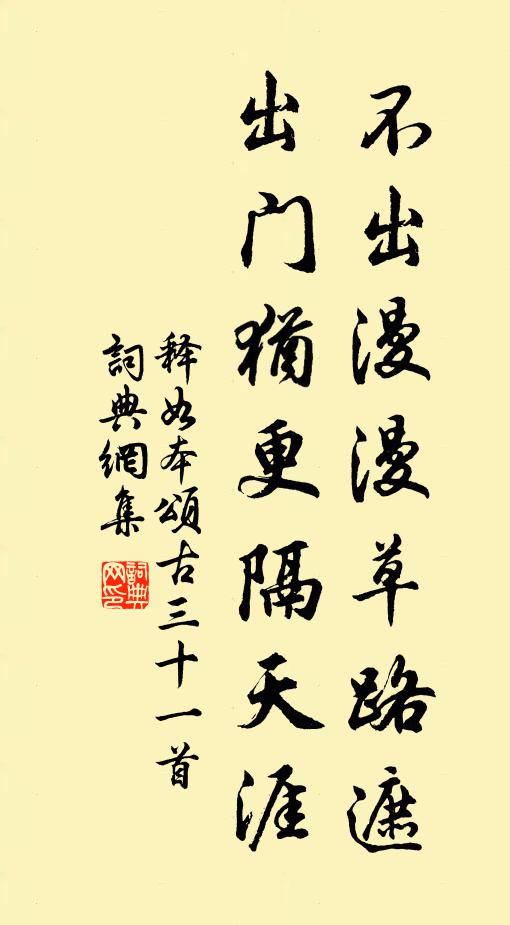 不出漫漫草路遮
出門猶更隔天涯
释如本頌古三十一首
詞典網集
詞典网印